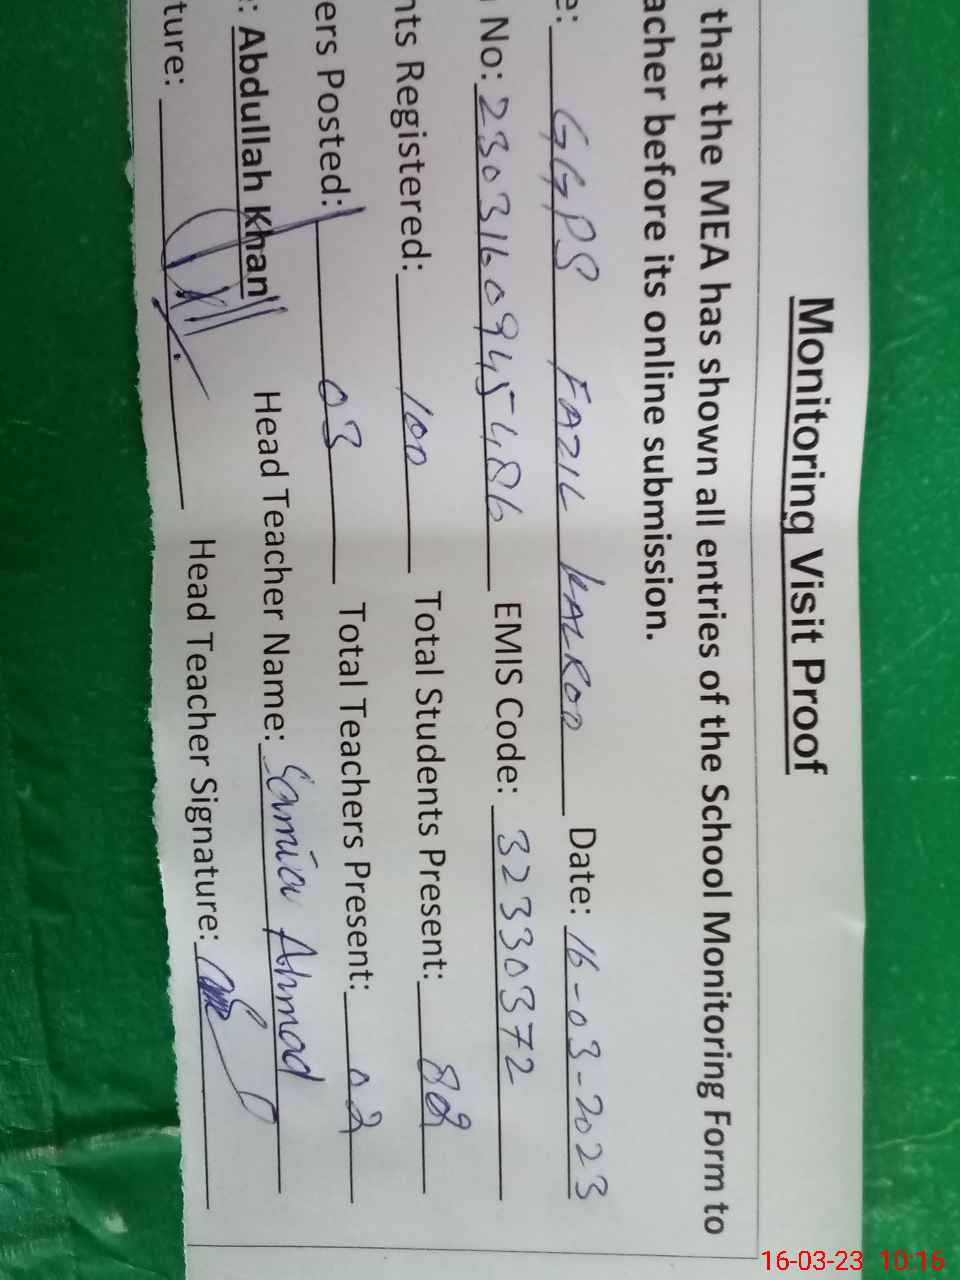 Monitoring Visit Proof
that the MEA has shown all entries of the School Monitoring Form to
acher before its online submission.
e: GGPS FAZIL KALROO Date: 16-03-2023
No: 230316094548b EMIS Code: 32330372
nts Registered: 100 Total Students Present: 82
ers Posted: 03 Total Teachers Present: 02
: Abdullah Khan Head Teacher Name: Samia Ahmad
ture: Head Teacher Signature:
16-03-23 10:16